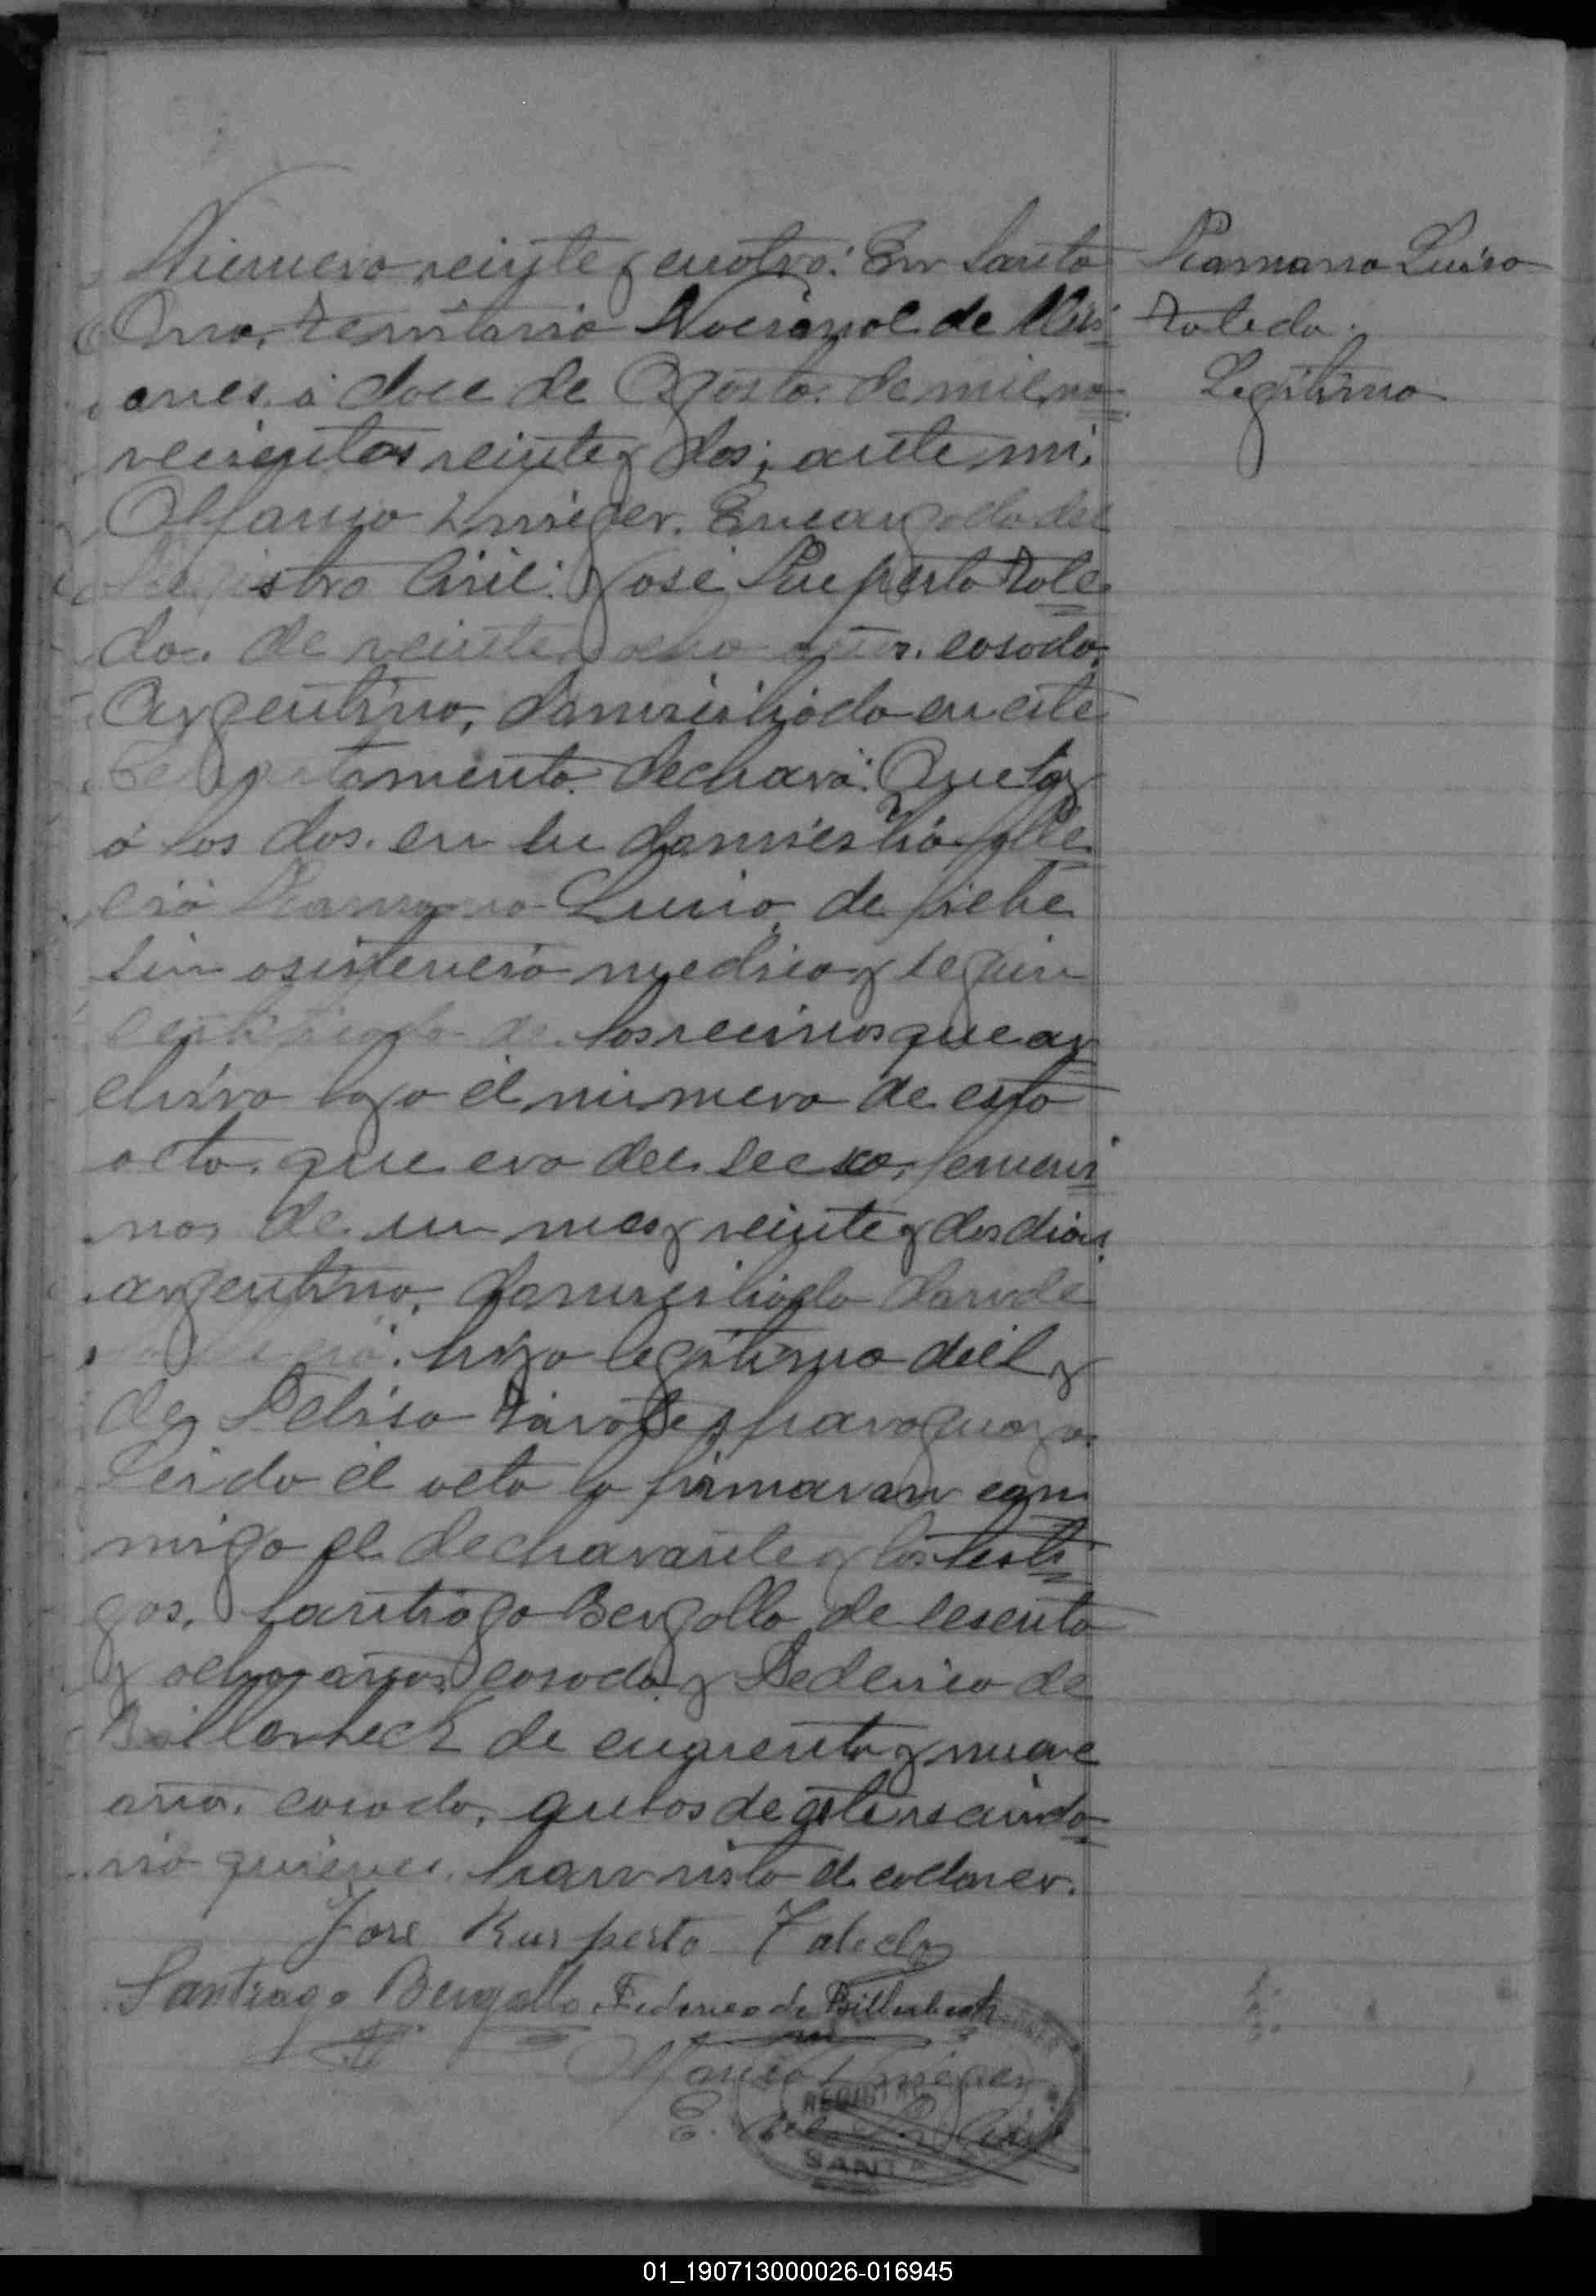 Numero veinte y cuatro: En Santa
Ana, Territorio Nacional de Misi
ones, á doce de Agosto de mil no
vecientos veinte y dos; ante mi,
Encargado del
Registro Civil: José Ruperto Tole
do, de veinte y ocho años, casado,
Argentino, domiciliado en este
Departamento, declaró: Que hoy
á las dos, en su domicilio falle
ció Ramona Luisa, de fiebre
sin asistencia medica y según
certificado de los vecinos que ar
chivo bajo el numero de esta
acta, que era del secxo, femeni
no, de un mes y veinte y dos dias,
argentina, domiciliada donde
falleció; hija legitima del y
de Felisa paraguaya.
Leida el acta la firmaron con
migo el declarante y los testi
gos, Santiago Bergallo de sesenta
y ocho años, casado y Federico de
Billerbeck de cuarenta y nueve
años, casado, ambos de este vecinda
rio quienes han visto el cadaver.
José Rusperto Toledo
Santiago Bergallo Federico de Billerbeck
REGISTRO
SANTA
Ramona Luisa
Toledo.
Legitima
01_190713000026-016945